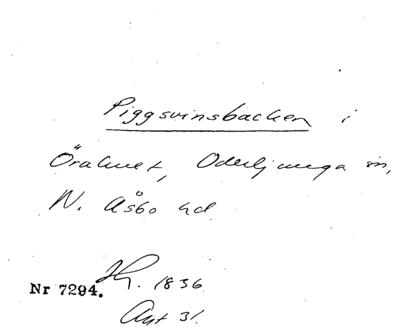 Piggsvinsbacken i
Örahult, Oderljunga sn,
N. Åsbo hd
Nr 7294. 1836
Ant 31.